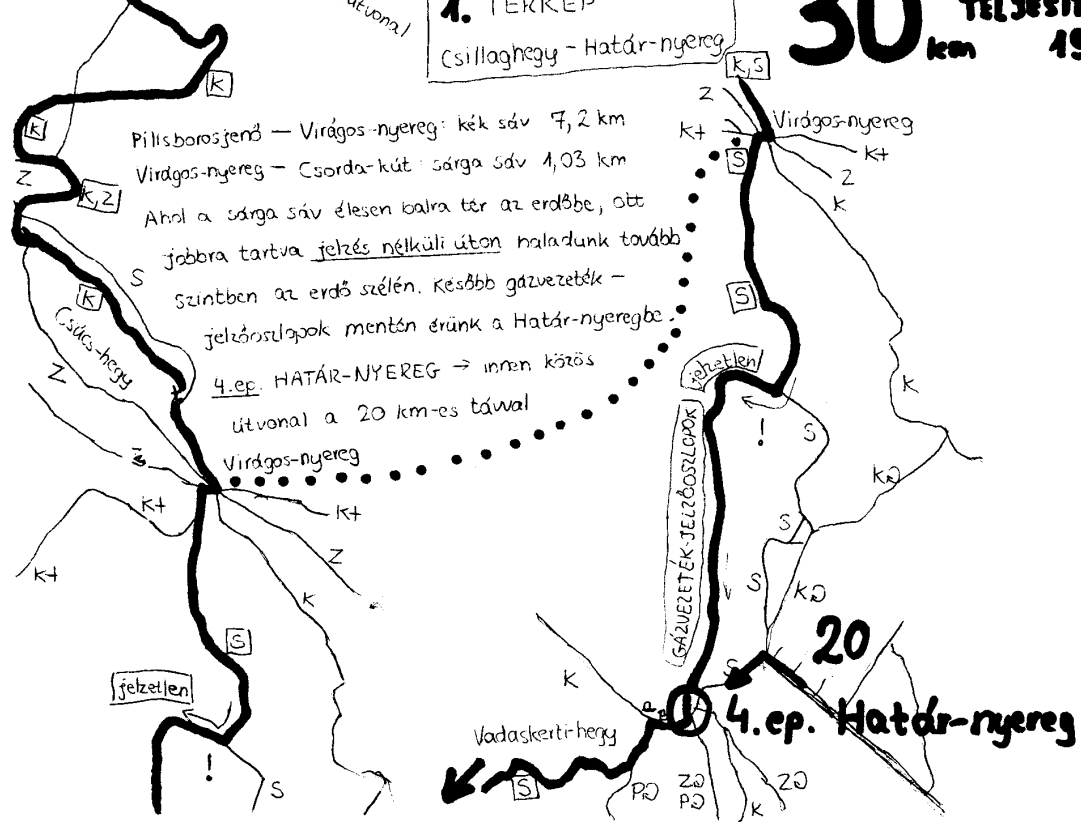 útvonal
1. TÉRKÉP
Csillaghegy - Határ-nyereg
30 km
K
K
Z
K,Z
S
K
Csúcs-hegy
Z
Pilisborosjenő — Virágos-nyereg: kék sáv 7,2 km
Virágos-nyereg — Csorda-kút: sárga sáv 1,03 km
Ahol a sárga sáv élesen balra tér az erdőbe, ott
jobbra tartva jelzés nélküli úton haladunk tovább
szintben az erdő szélén. Később gázvezeték-
jelzőoszlopok mentén érünk a Határ-nyeregbe.
4.ep. HATÁR-NYEREG → innen közös
útvonal a 20 km-es távval
Virágos-nyereg
K+
K+
K+
Z
K
S
jelzetlen
!
S
K,S
Z
K+
S
Virágos-nyereg
K+
Z
K
S
K
jelzetlen
!
S
GÁZVEZETÉK-JELZŐOSZLOPOK
S
S
S
20
4.ep. Határ-nyereg
K
Vadaskerti-hegy
S
K